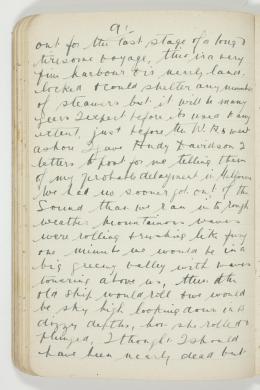 91
out for the last stage of a long &
tiresome voyage, this is a very
fine harbour & is nearly land
locked & could shelter any number
of steamers but it will be many
years I expect before its used to any
extent, just before the
ashore I gave Andy Davidson 2
letters to post for me telling them
of my probable delayment in
We had no sooner got out of the
Sound than we ran into rough
weather mountainous waves
were rolling & rushing like fury
one minute we would be in a
big green valley with waves
towering above us, then the
old ship would roll & we would
be sky high looking down into
dizzy depths, how she rolled &
plunged, I thought I should
have been nearly dead but